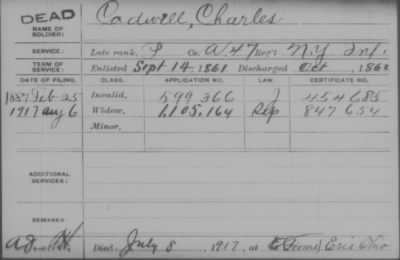 DEAD
NAME OF SOLDIER: Cadwell, Charles
SERVICE: Late rank, P Co. A, 47 Reg't N.Y. Inf.
TERM OF SERVICE: Enlisted Sept 14, 1861 Discharged Oct , 1862
DATE OF FILING. CLASS. APPLICATION NO. LAW. CERTIFICATE NO.
1887 Feb 25 Invalid, 599 366 J 454 685
1917 Aug 6 Widow, 1,105,164 Rep 847 654
Minor,
ADDITIONAL SERVICES:
REMARKS:
Died July 8 1917, at Erie Ohio